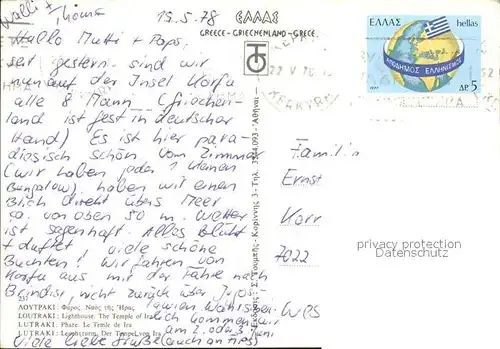 Walli + Thomas
19.5.78
ΕΛΛΑΣ
GREECE - GRIECHENLAND - GRECE
Hallo Mutti + Paps,
seit gestern sind wir
nun auf der Insel Korfu
alle 8 Mann (Griechen-
land ist fest in deutscher
Hand) Es ist hier para-
diesisch schön vom Zimmer
(wir haben jeder 1 kleinen
Bungalow) haben wir einen
Blick direkt übers Meer
ca. von oben 50 m. Wetter
ist sagenhaft. Alles blüht
+ duftet, viele schöne
Buchten! Wir fahren von
Korfu aus mit der Fähre nach
Brindisi, nicht zurück über Jugos-
lawien
kommen wir
am 2. oder 3. Juni
Viele liebe Grüße (auch an
237
ΛΟΥΤΡΑΚΙ: Φάρος. Ναός τῆς Ἥρας
LOUTRAKI: Lighthouse. The Temple of Ira
LUTRAKI: Phare. Le Temle de Ira
LUTRAKI: Leuchtturm. Der Tempel von Ira
Ἐκδόσεις: Σ. Τουμπῆς - Κορίννης 3 - Τηλ. 3541.093 - Ἀθῆναι
ΕΛΛΑΣ hellas
ΑΠΟΔΗΜΟΣ ΕΛΛΗΝΙΣΜΟΣ
1977 ΔΡ. 5
22 V 78
ΚΕΡΚΥΡΑ
Familie
Ernst
Korr
7022
privacy protection
Datenschutz